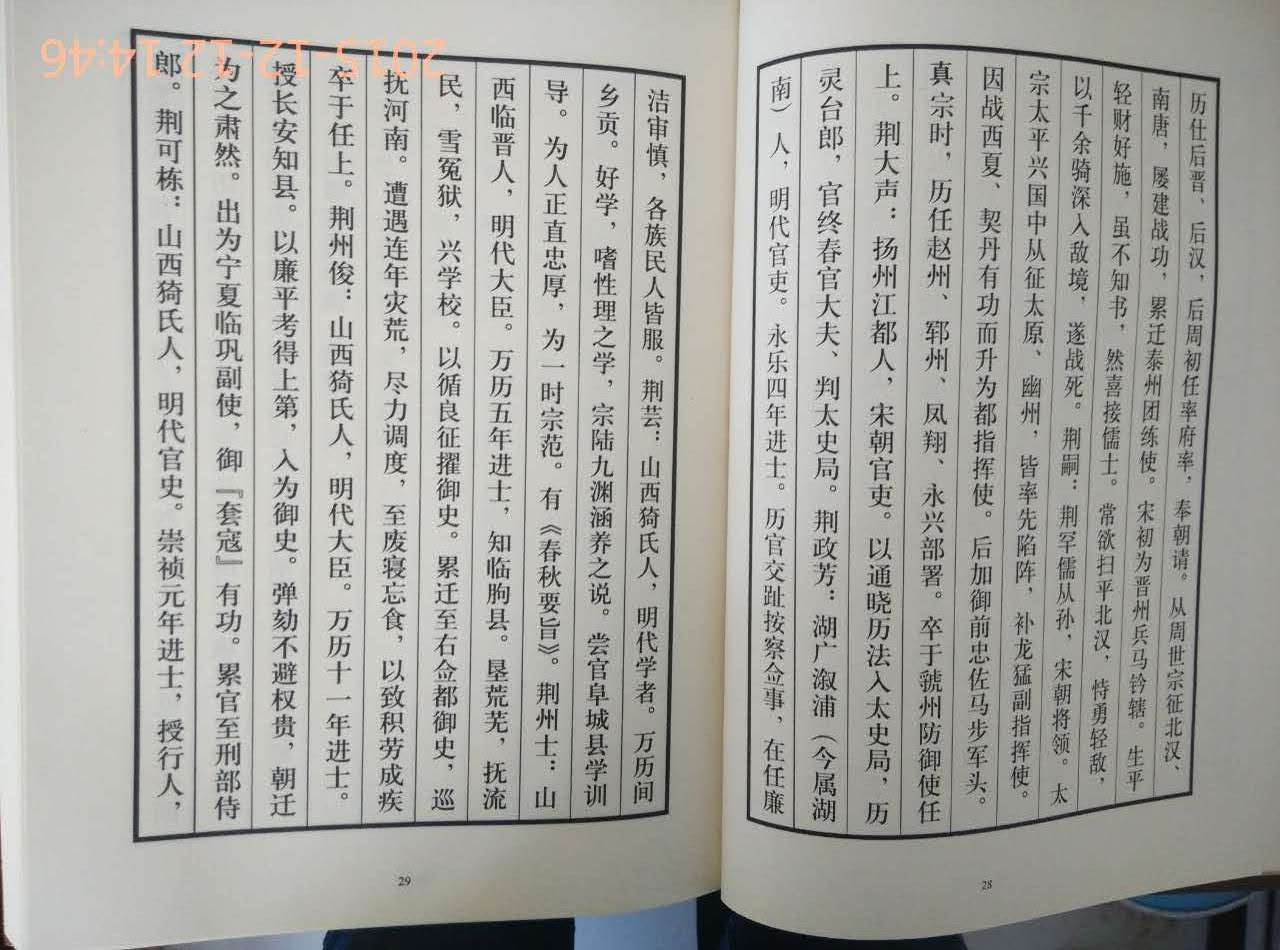 历仕后晋、后汉，后周初任率府率，奉朝请。从周世宗征北汉、
南唐，屡建战功，累迁泰州团练使。宋初为晋州兵马钤辖。生平
轻财好施，虽不知书，然喜接儒士。常欲扫平北汉，恃勇轻敌，
以千余骑深入敌境，遂战死。荆嗣：荆罕儒从孙，宋朝将领。太
宗太平兴国中从征太原、幽州，皆率先陷阵，补龙猛副指挥使。
因战西夏、契丹有功而升为都指挥使。后加御前忠佐马步军头。
真宗时，历任赵州、郓州、凤翔、永兴部署。卒于虢州防御使任
上。荆大声：扬州江都人，宋朝官吏。以通晓历法入太史局，历
灵台郎，官终春官大夫、判太史局。荆政芳：湖广溆浦（今属湖
南）人，明代官吏。永乐四年进士。历官交趾按察佥事，在任廉
28
洁审慎，各族民人皆服。荆芸：山西猗氏人，明代学者。万历间
乡贡。好学，嗜性理之学，宗陆九渊涵养之说。尝官阜城县学训
导。为人正直忠厚，为一时宗范。有《春秋要旨》。荆州士：山
西临晋人，明代大臣。万历五年进士，知临朐县。垦荒芜，抚流
民，雪冤狱，兴学校。以循良征擢御史。累迁至右佥都御史，巡
抚河南。遭遇连年灾荒，尽力调度，至废寝忘食，以致积劳成疾
卒于任上。荆州俊：山西猗氏人，明代大臣。万历十一年进士。
授长安知县。以廉平考得上第，入为御史。弹劾不避权贵，朝廷
为之肃然。出为宁夏临巩副使，御『套寇』有功。累官至刑部侍
郎。荆可栋：山西猗氏人，明代官史。崇祯元年进士，授行人，
29
2015-12-12 14:46